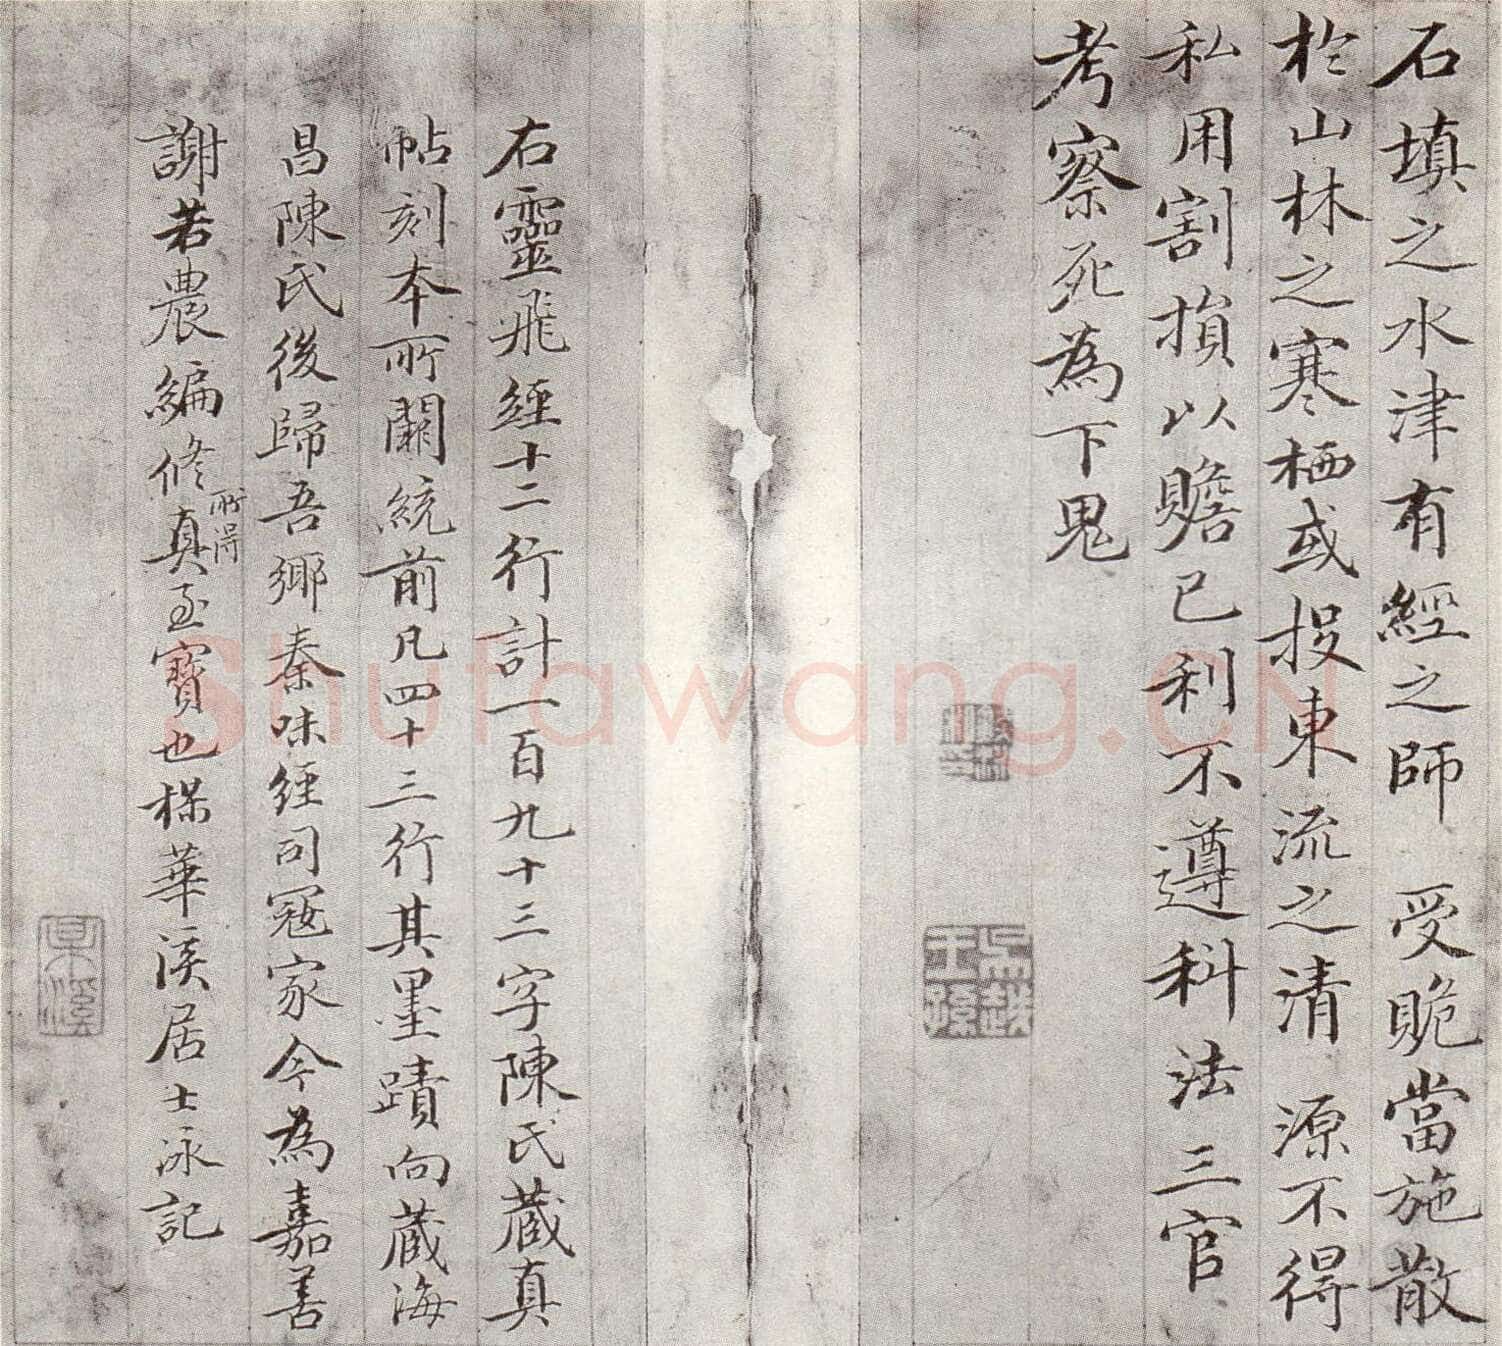 石填之水津有經之師 受賍當施散
於山林之寒栖或投東流之清 源不得
私用割損以贍己利不遵科法三官
考察死為下鬼
吳越王孫
右靈飛經十二行計一百九十三字陳氏藏真
帖刻本所闕統前凡四十三行其墨蹟向藏海
昌陳氏後歸吾鄉秦味經司寇家今為嘉善
謝若農編修所得真至寶也楳華溪居士泳記
Shufawang.CN